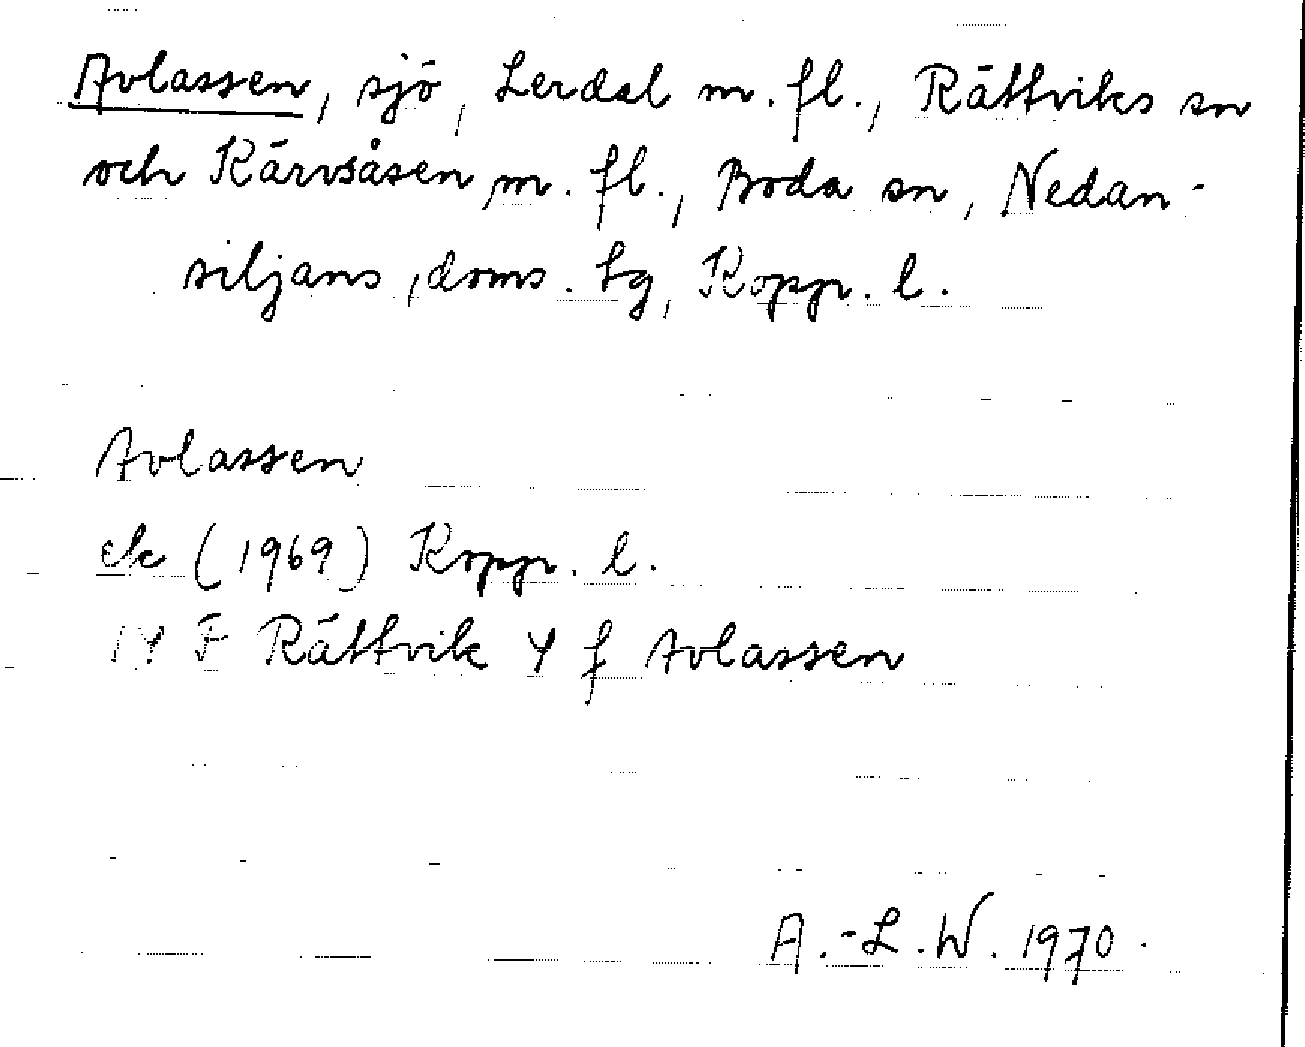 Avlassen, sjö, Lerdal m. fl., Rättviks sn
och Kärvsåsen m. fl., Boda sn, Nedan-
siljans, doms. tg, Kopp. l.
Avlassen
ek (1969) Kopp. l.
14 F Rättvik 4 f Avlassen
A.-L. W. 1970.